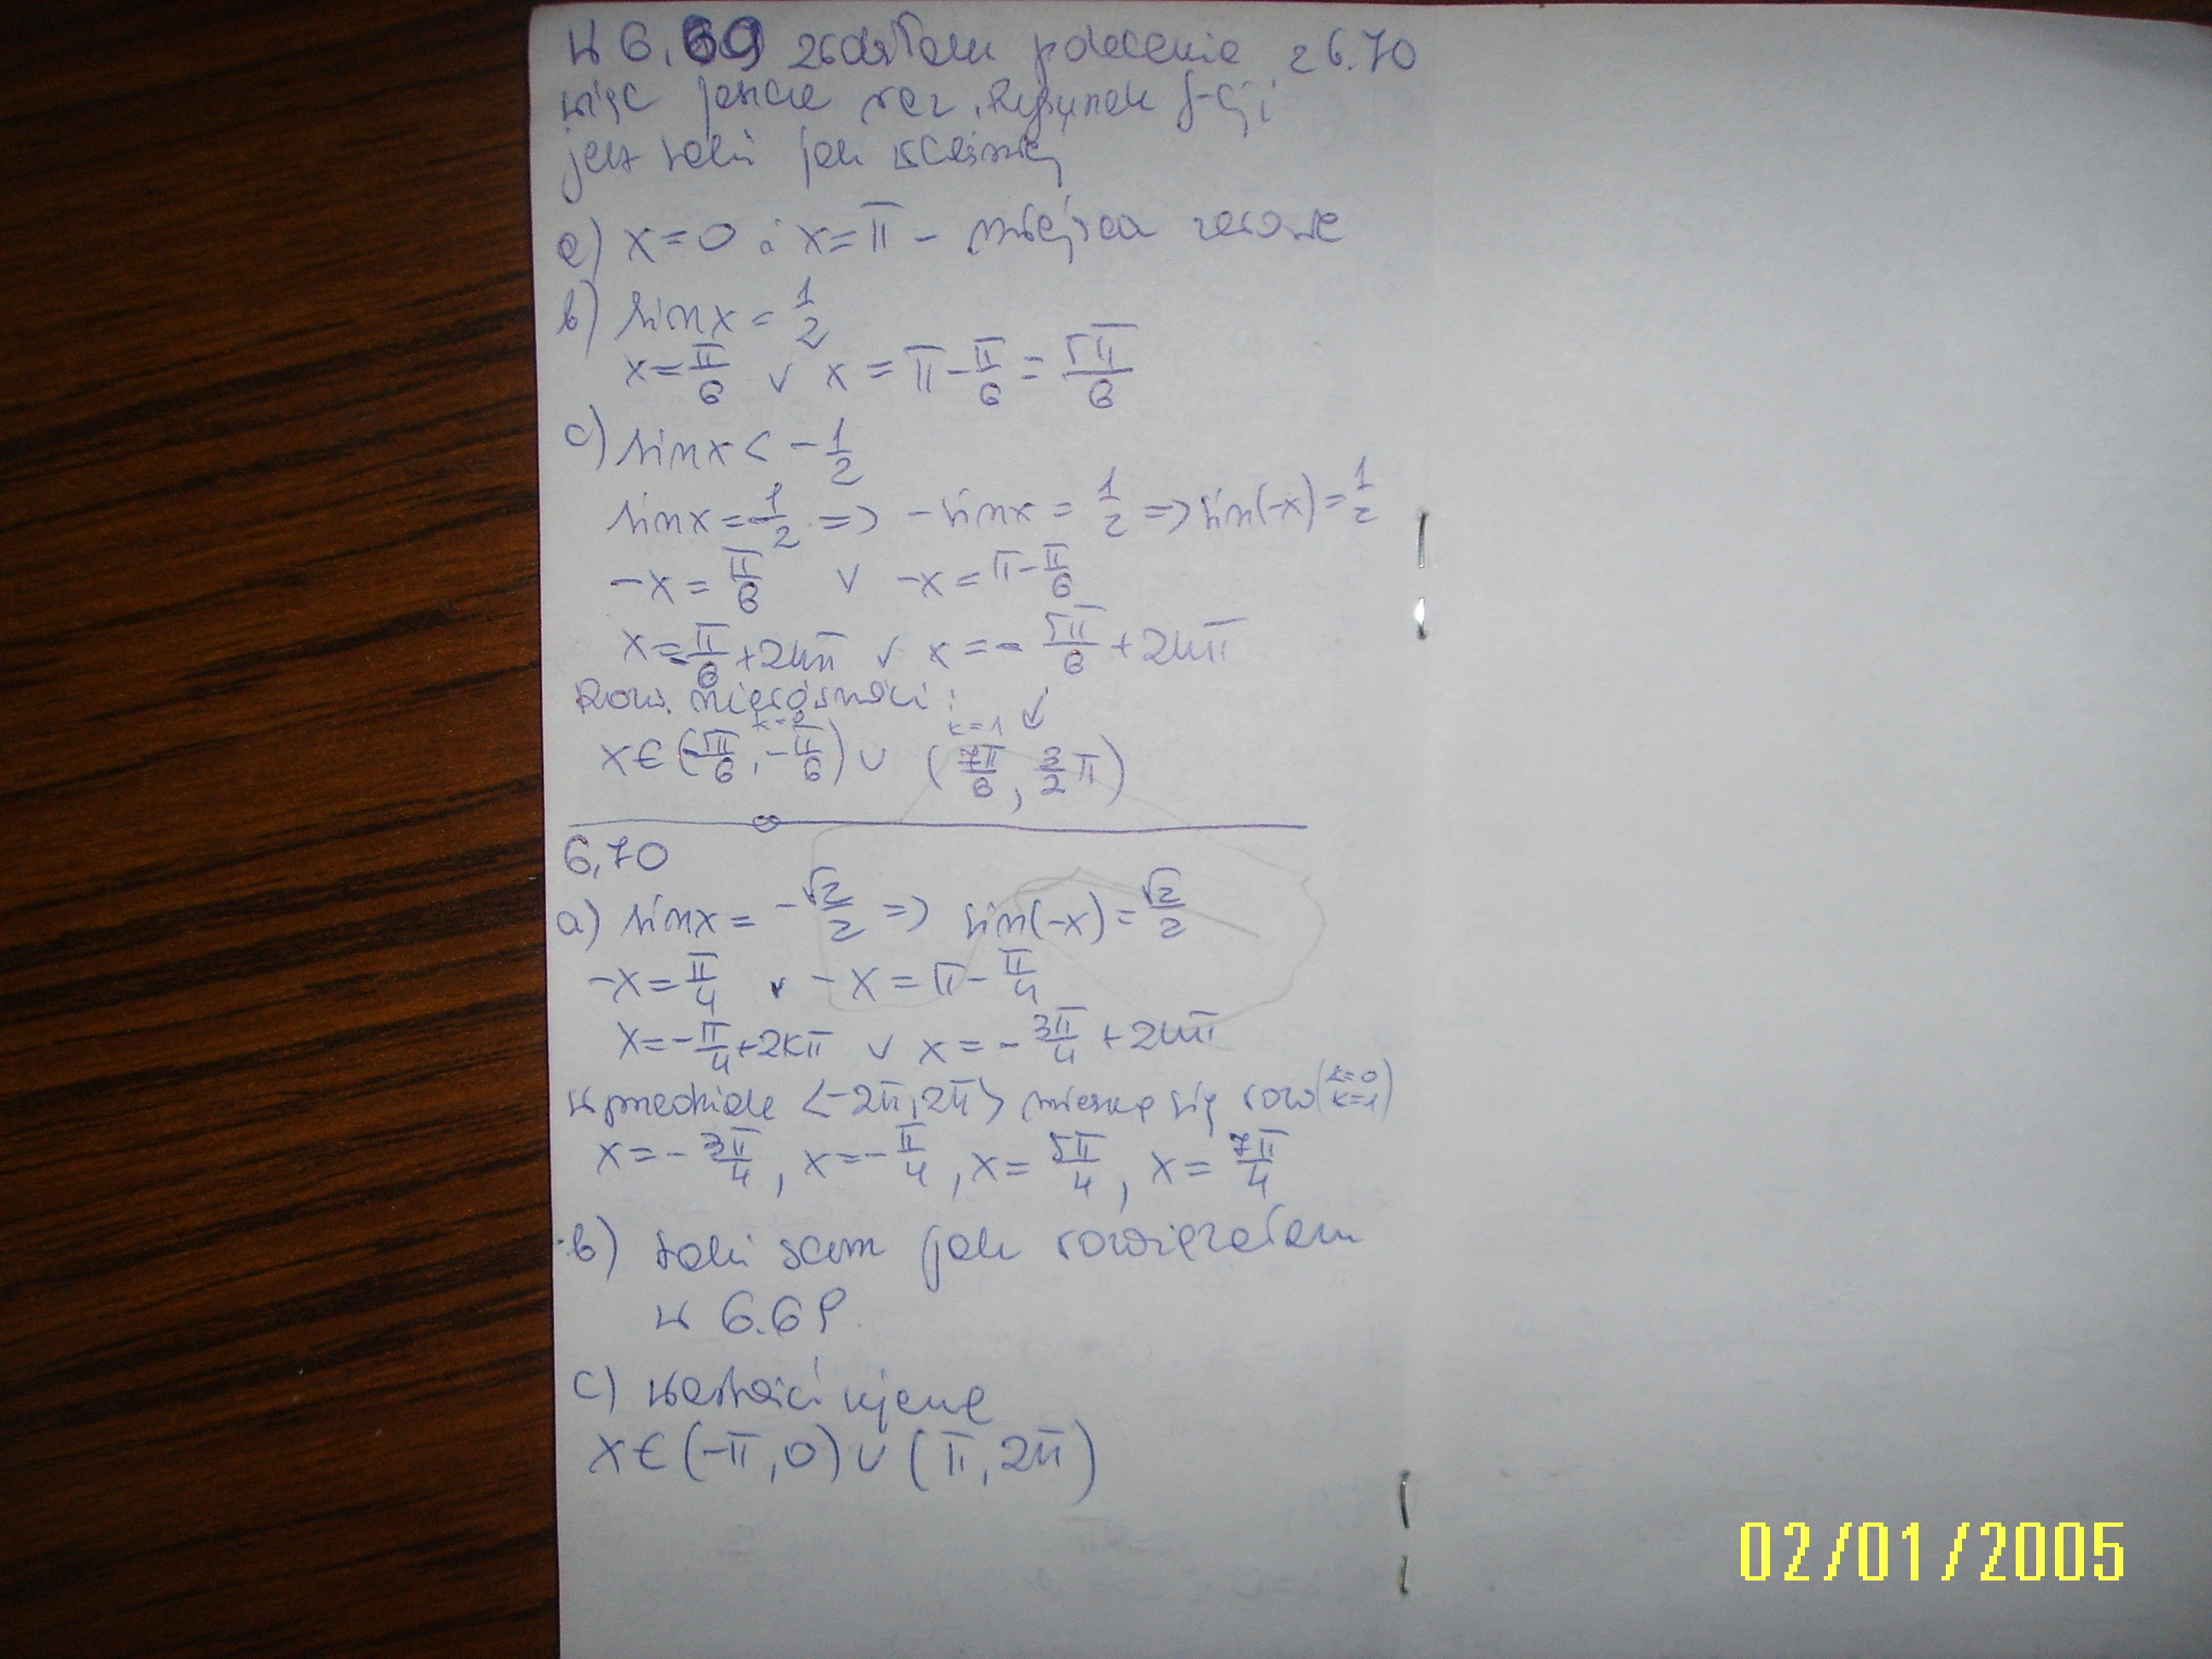 W 6.69 zrobiłam polecenie z 6.70
więc jeszcze raz. Rysunek f-cji
jest taki jak wcześniej
a) x=0 i x=π - miejsca zerowe
b) sinx = 1/2
x = π/6 ∨ x = π - π/6 = 5π/6
c) sinx < -1/2
sinx = -1/2 => -sinx = 1/2 => sin(-x) = 1/2
-x = π/6 ∨ -x = π - π/6
x = -π/6 + 2kπ ∨ x = -5π/6 + 2kπ
Rozw. nierówności:
k=0 k=1
x∈(-5π/6, -π/6) ∪ (7π/6, 3/2 π)
6.70
a) sinx = -√2/2 => sin(-x) = √2/2
-x = π/4 ∨ -x = π - π/4
x = -π/4 + 2kπ ∨ x = -3π/4 + 2kπ
w przedziale <-2π, 2π> mieszczą się rozw (k=0 k=1)
x = -3π/4, x = -π/4, x = 5π/4, x = 7π/4
b) taki sam jak rozwiązałam
w 6.69
c) wartości ujemne
x∈(-π, 0) ∪ (π, 2π)
02/01/2005